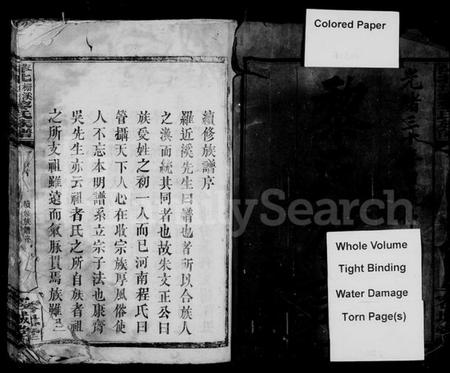 Colored Paper
光緒三
續修族譜序
羅近溪先生曰譜也者所以合族人
之渙而統其同者也故朱文正公曰
族受姓之初一人而已河南程氏曰
管攝天下人心在收宗族厚風俗使
人不忘本明譜系立宗子法也康齋
吳先生亦云祖者氏之所自族者祖
之所支祖雖遠而氣脉貫焉族雖
續修族譜序
FamilySearch
Whole Volume
Tight Binding
Water Damage
Torn Page(s)